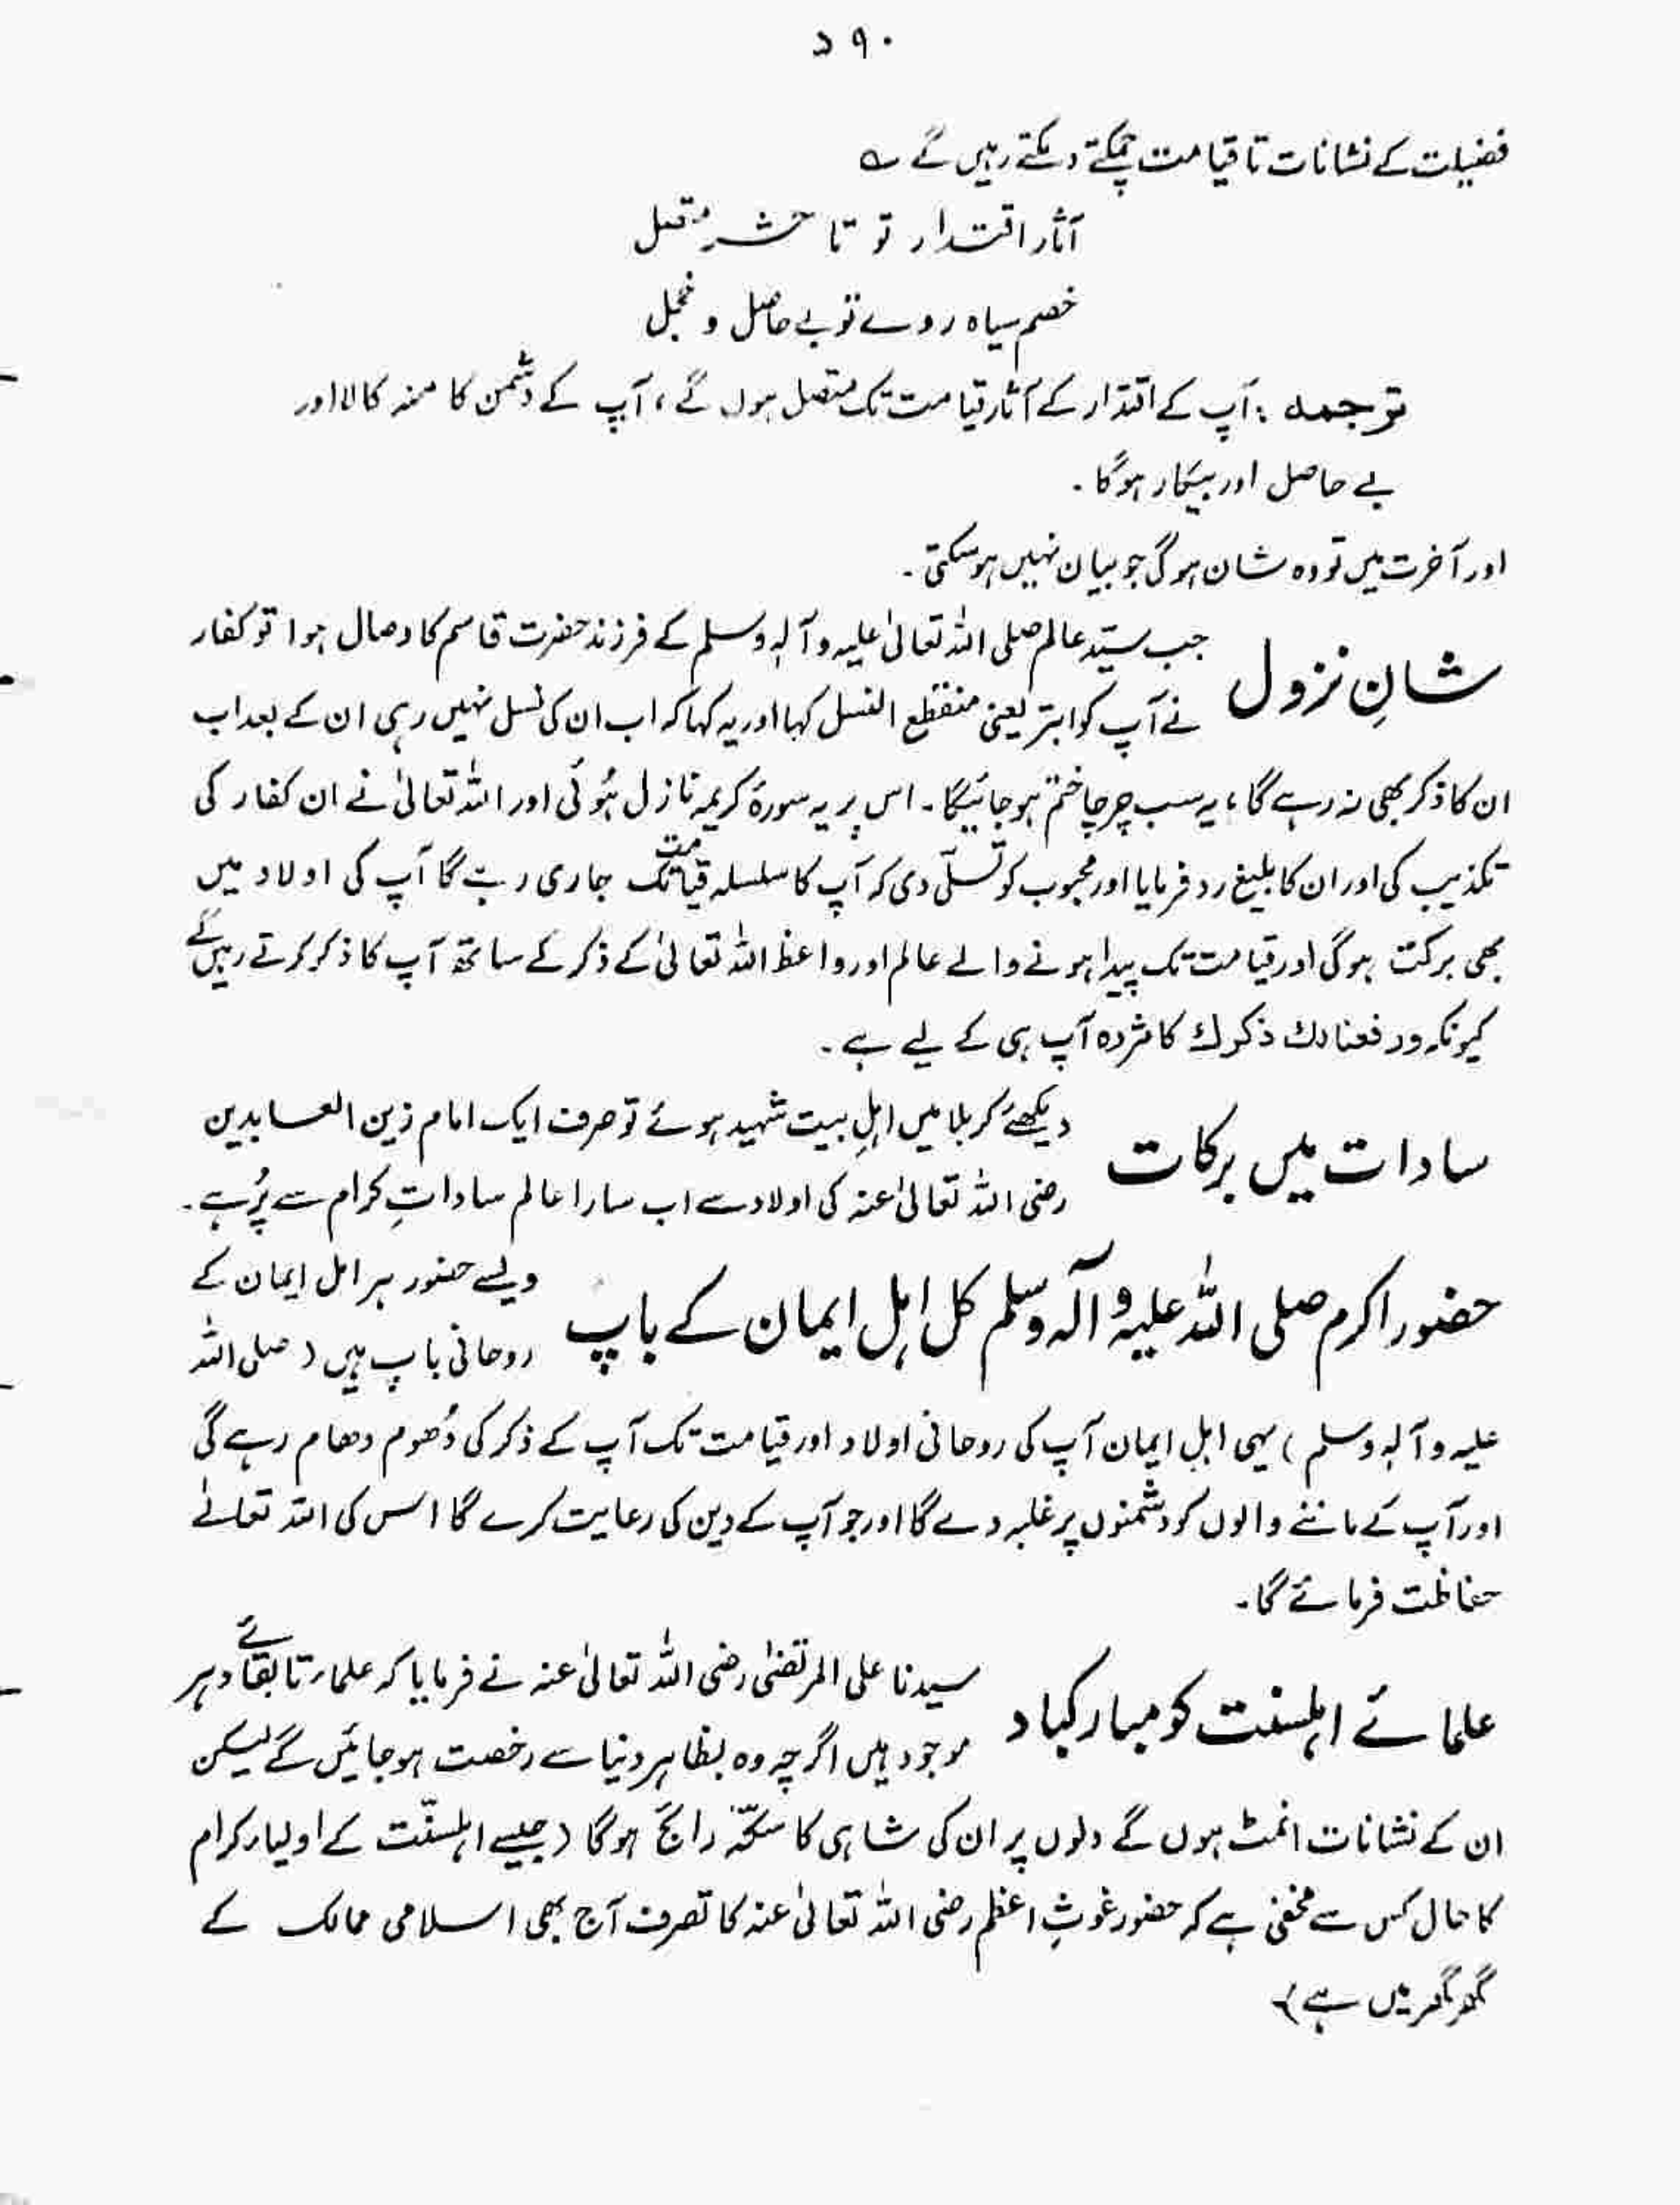 ۵۹۰
فضیلت کے نشانات تا قیامت چمکتے دمکتے رہیں گے ؎
آثار اقتدار تو تا حشر متصل
خصم سیاہ روے تو بے حاصل و خجل
ترجمہ : آپ کے اقتدار کے آثار قیامت تک متصل ہوں گے ، آپ کے دشمن کا منہ کالا اور
بے حاصل اور بیکار ہوگا ۔
اور آخرت میں تو وہ شان ہوگی جو بیان نہیں ہوسکتی ۔
شانِ نزول جب سیّد عالم صلی اللہ تعالیٰ علیہ وآلہٖ وسلم کے فرزند حضرت قاسم کا وصال ہوا تو کفار
نے آپ کو ابتر یعنی منقطع النسل کہا اور یہ کہا کہ اب ان کی نسل نہیں رہی ان کے بعد اب
ان کا ذکر بھی نہ رہے گا ، یہ سب چرچا ختم ہو جائیگا ۔ اس پر یہ سورۂ کریمہ نازل ہُوئی اور اللہ تعالیٰ نے ان کفار کی
تکذیب کی اور ان کا بلیغ رد فرمایا اور محبوب کو تسلّی دی کہ آپ کا سلسلہ قیامت تک جاری رہے گا آپ کی اولاد میں
بھی برکت ہوگی اور قیامت تک پیدا ہونے والے عالم اور واعظ اللہ تعالیٰ کے ذکر کے ساتھ آپ کا ذکر کرتے رہیں گے
کیونکہ ورفعنا لك ذكرك کا مژدہ آپ ہی کے لیے ہے ۔
سادات میں برکات دیکھئے کربلا میں اہلِ بیت شہید ہوئے تو صرف ایک امام زین العابدین
رضی اللہ تعالیٰ عنہ کی اولاد سے اب سارا عالم ساداتِ کرام سے پُر ہے ۔
حضور اکرم صلی اللہ علیہ وآلہٖ وسلم کل اہل ایمان کے باپ ویسے حضور ہر اہل ایمان کے
روحانی باپ ہیں ( صلی اللہ
علیہ وآلہٖ وسلم ) یہی اہلِ ایمان آپ کی روحانی اولاد اور قیامت تک آپ کے ذکر کی دُھوم دھام رہے گی
اور آپ کے ماننے والوں کو دشمنوں پر غلبہ دے گا اور جو آپ کے دین کی رعایت کرے گا اس کی اللہ تعالےٰ
حفاظت فرمائے گا ۔
علمائے اہلسنت کو مبارکباد سیدنا علی المرتضیٰ رضی اللہ تعالیٰ عنہ نے فرمایا کہ علماء تا بقائے دہر
موجود ہیں اگرچہ وہ بظاہر دنیا سے رخصت ہو جائیں گے لیکن
ان کے نشانات انمٹ ہوں گے دلوں پر ان کی شاہی کا سکّہ رائج ہوگا ( جیسے اہلسنّت کے اولیاء کرام
کا حال کس سے مخفی ہے کہ حضور غوثِ اعظم رضی اللہ تعالیٰ عنہ کا تصرف آج بھی اسلامی ممالک کے
گھر گھر میں ہے )